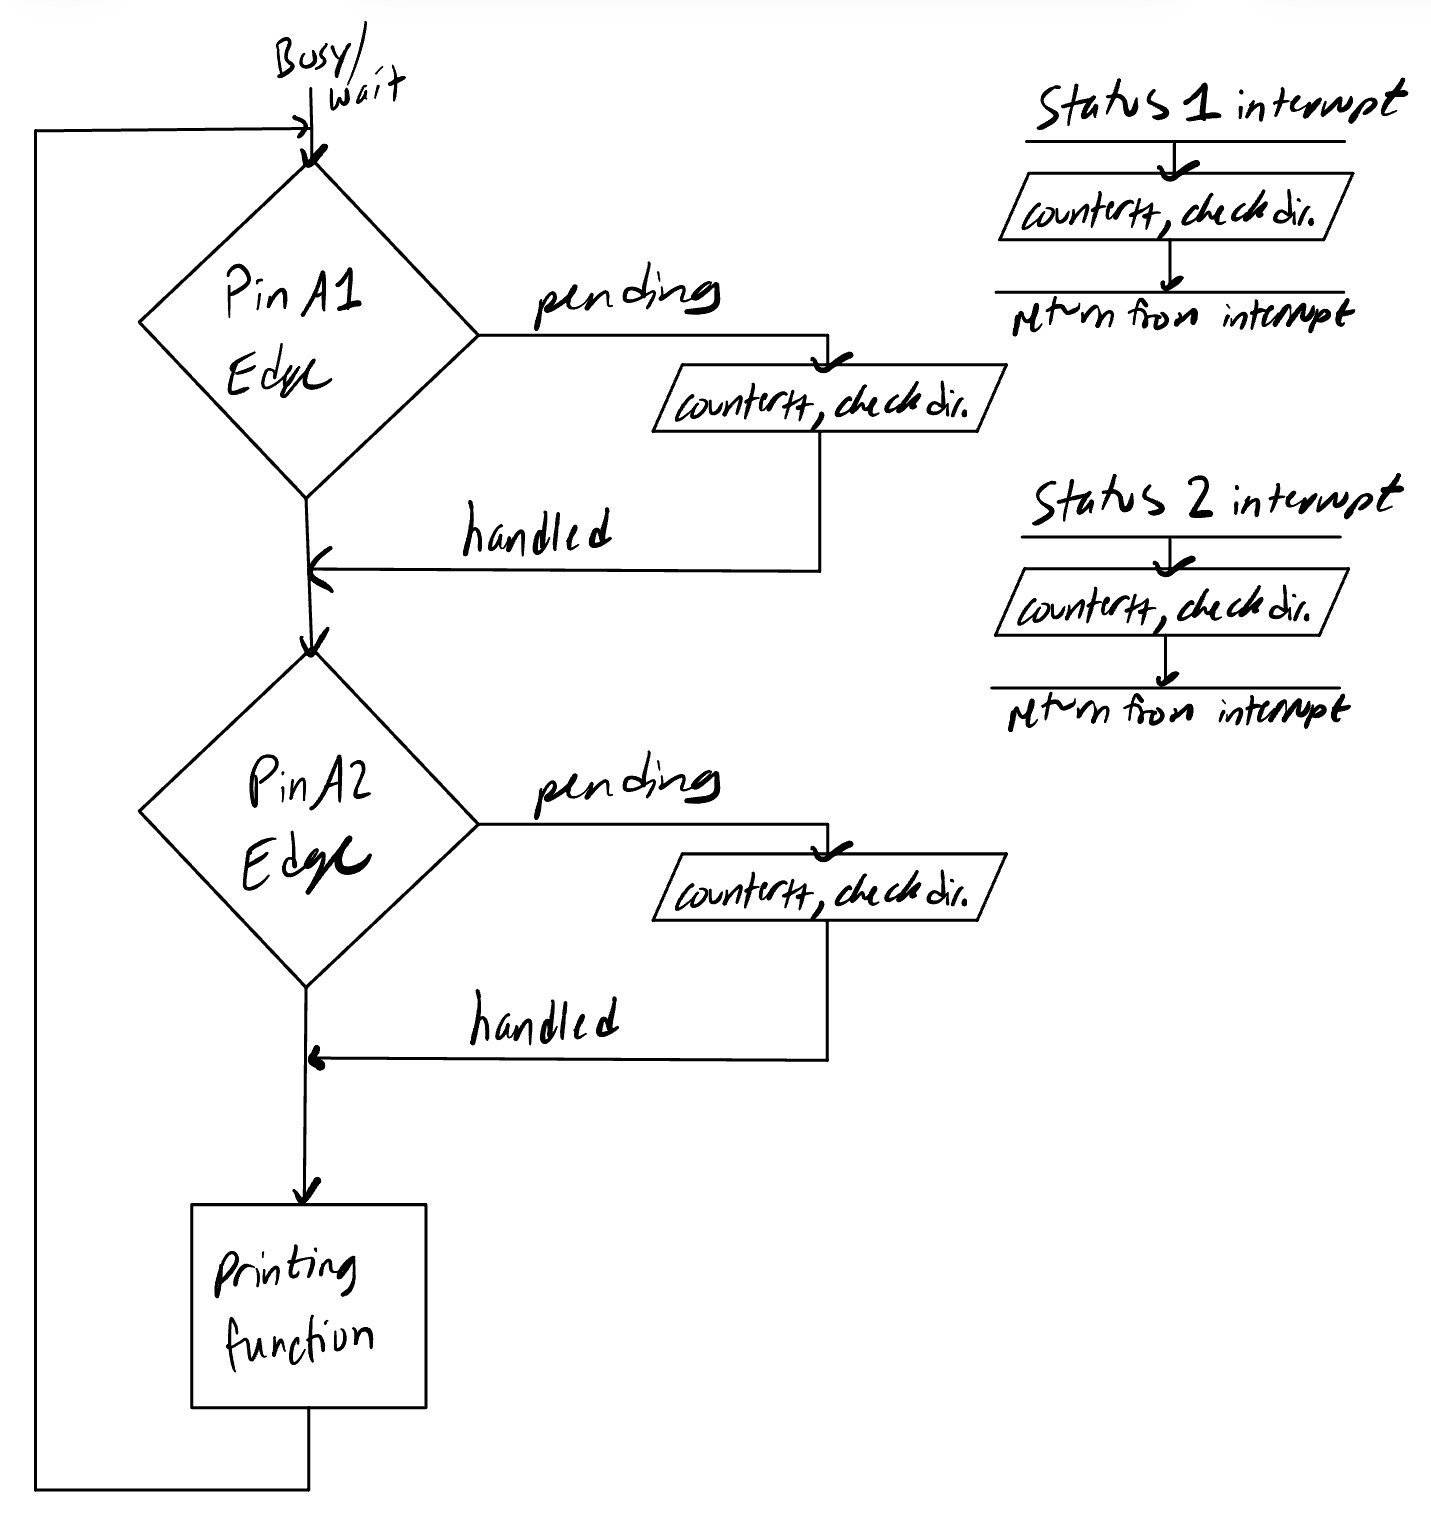 Busy/
wait
Pin A1
Edge
pending
counter++, check dir.
handled
Pin A2
Edge
pending
counter++, check dir.
handled
Printing
function
Status 1 interrupt
counter++, check dir.
return from interrupt
Status 2 interrupt
counter++, check dir.
return from interrupt